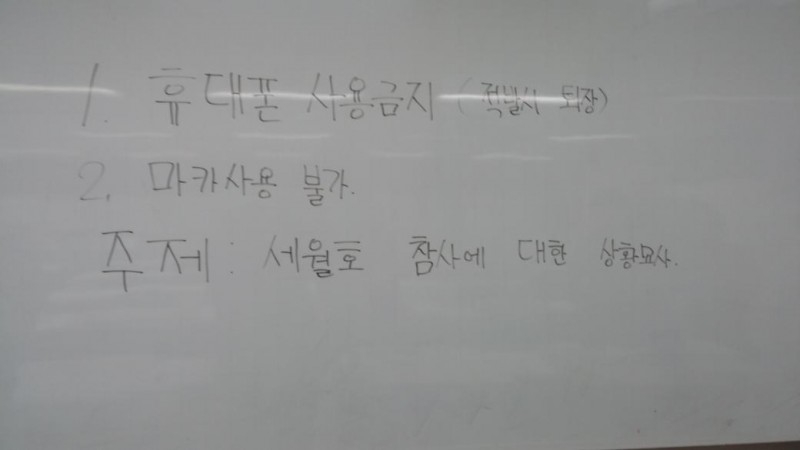 1. 휴대폰 사용금지 (적발시 퇴장)
2. 마카사용 불가.
주제: 세월호 참사에 대한 상황묘사.